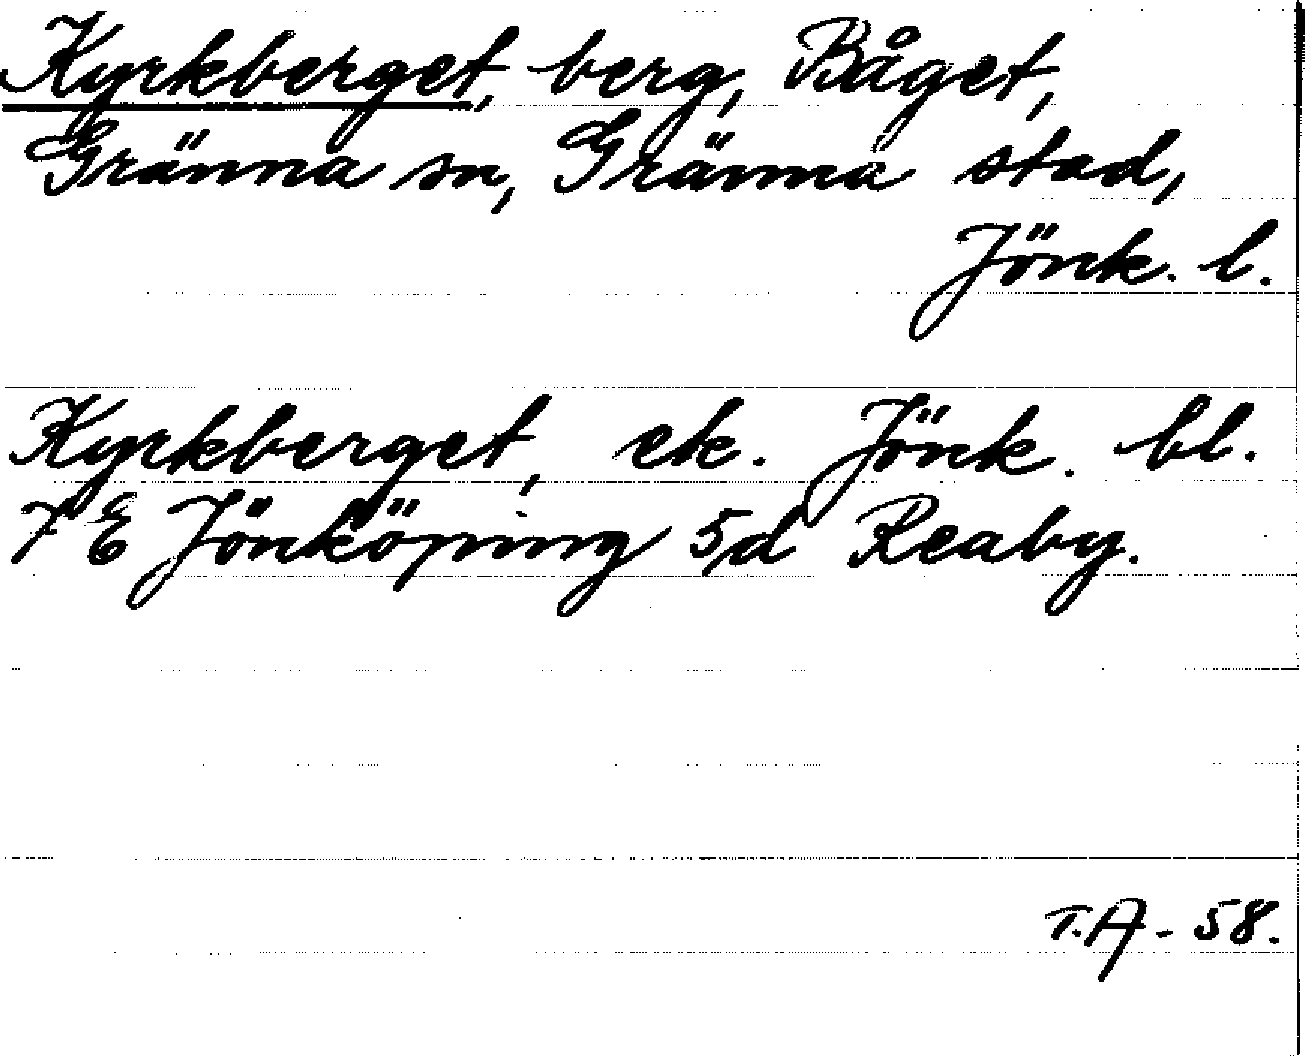 Kyrkberget, berg, Båget,
Gränna sn, Gränna stad,
Jönk. l.
Kyrkberget, ek. Jönk. bl.
7 E Jönköping 5d Reaby.
T.A - 58.